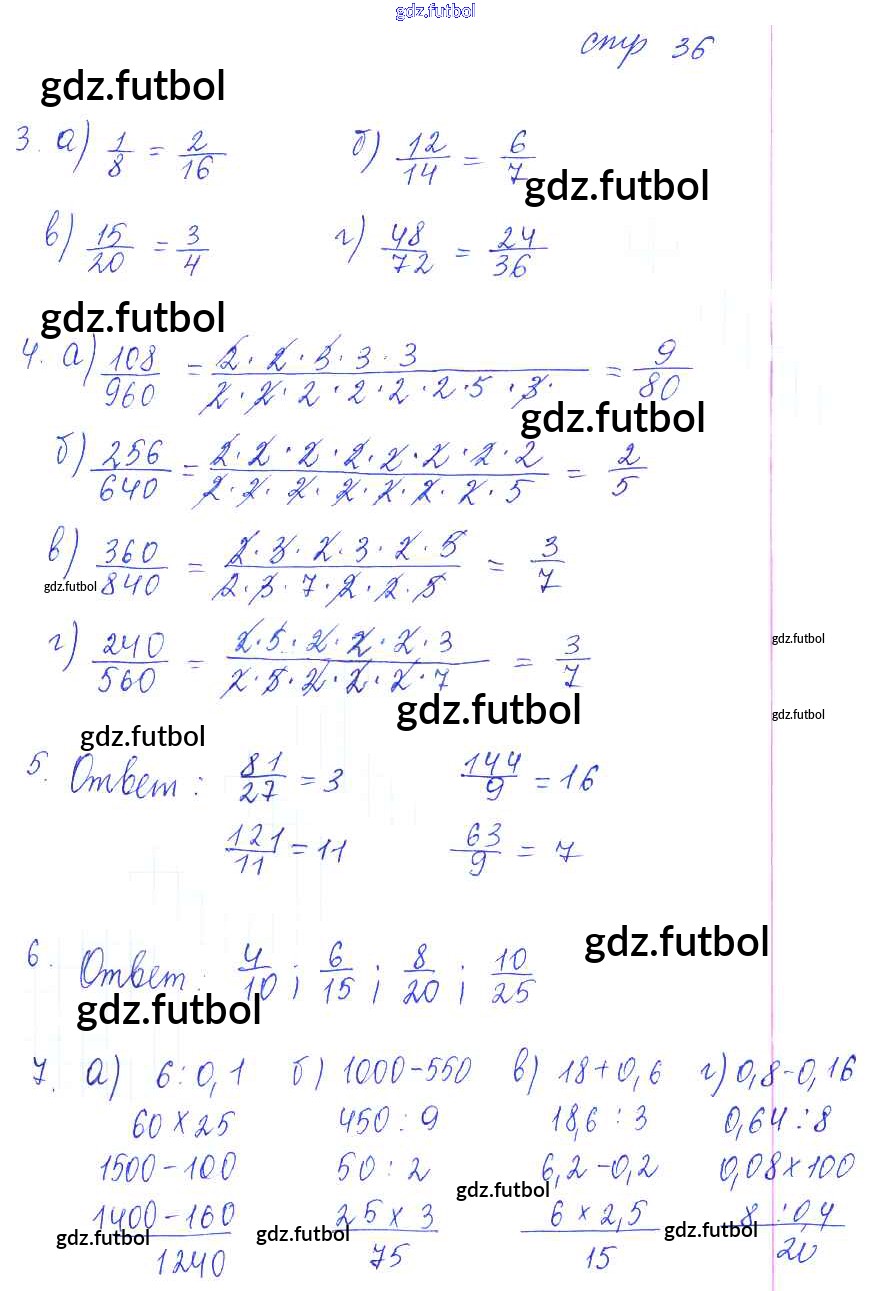 gdz.futbol
стр 36
gdz.futbol
3. а) 1/8 = 2/16 б) 12/14 = 6/7
gdz.futbol
в) 15/20 = 3/4 г) 48/72 = 24/36
gdz.futbol
4. а) 108/960 = 2·2·3·3·3 / 2·2·2·2·2·2·5·3· = 9/80
gdz.futbol
б) 256/640 = 2·2·2·2·2·2·2·2 / 2·2·2·2·2·2·2·5 = 2/5
в) 360/840 = 2·3·2·3·2·5 / 2·3·7·2·2·5 = 3/7
gdz.futbol
г) 240/560 = 2·5·2·2·2·3 / 2·5·2·2·2·7 = 3/7
gdz.futbol
gdz.futbol
gdz.futbol
gdz.futbol
5. Ответ: 81/27 = 3 144/9 = 16
121/11 = 11 63/9 = 7
gdz.futbol
6. Ответ: 4/10; 6/15; 8/20; 10/25
gdz.futbol
7. а) 6:0,1 б) 1000-550 в) 18+0,6 г) 0,8-0,16
60×25 450:9 18,6:3 0,64:8
1500-100 50:2 6,2-0,2 0,08×100
gdz.futbol
1400-160 25×3 6×2,5 8:0,4
gdz.futbol gdz.futbol gdz.futbol
1240 75 15 20